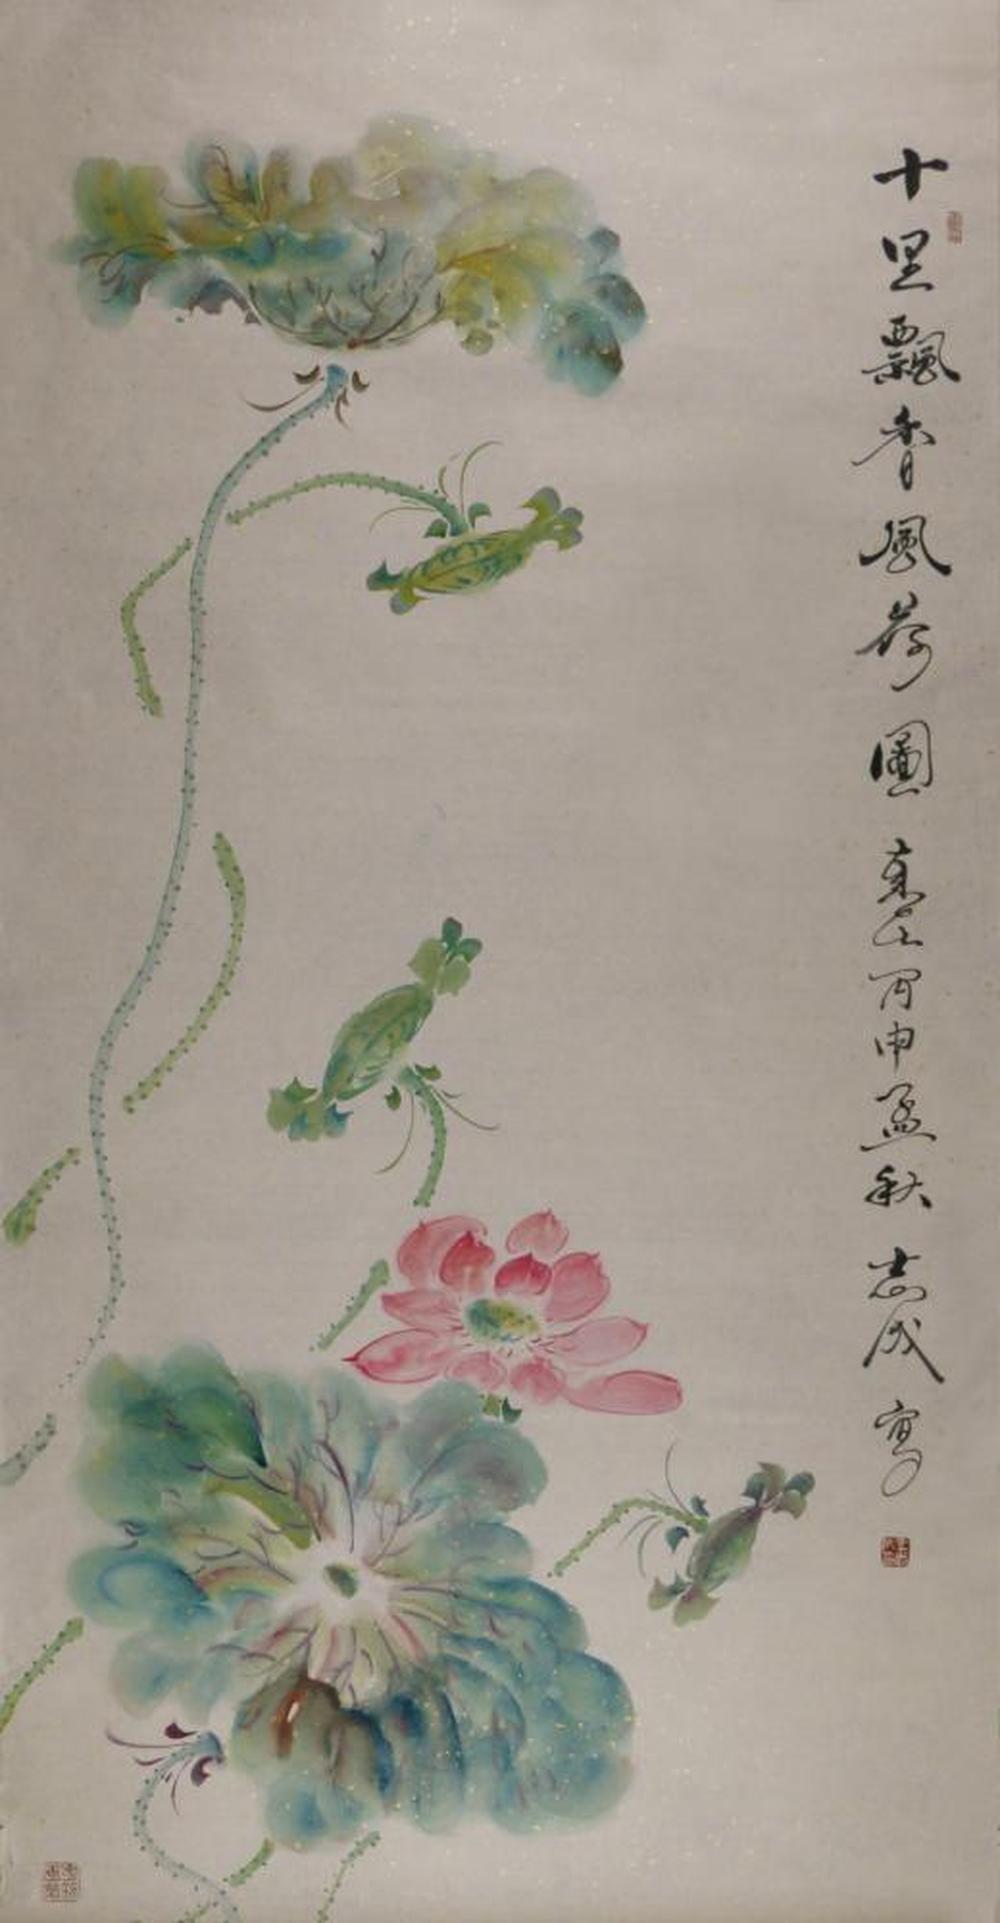 十里飄香風荷圖 丙申孟秋 志成寫